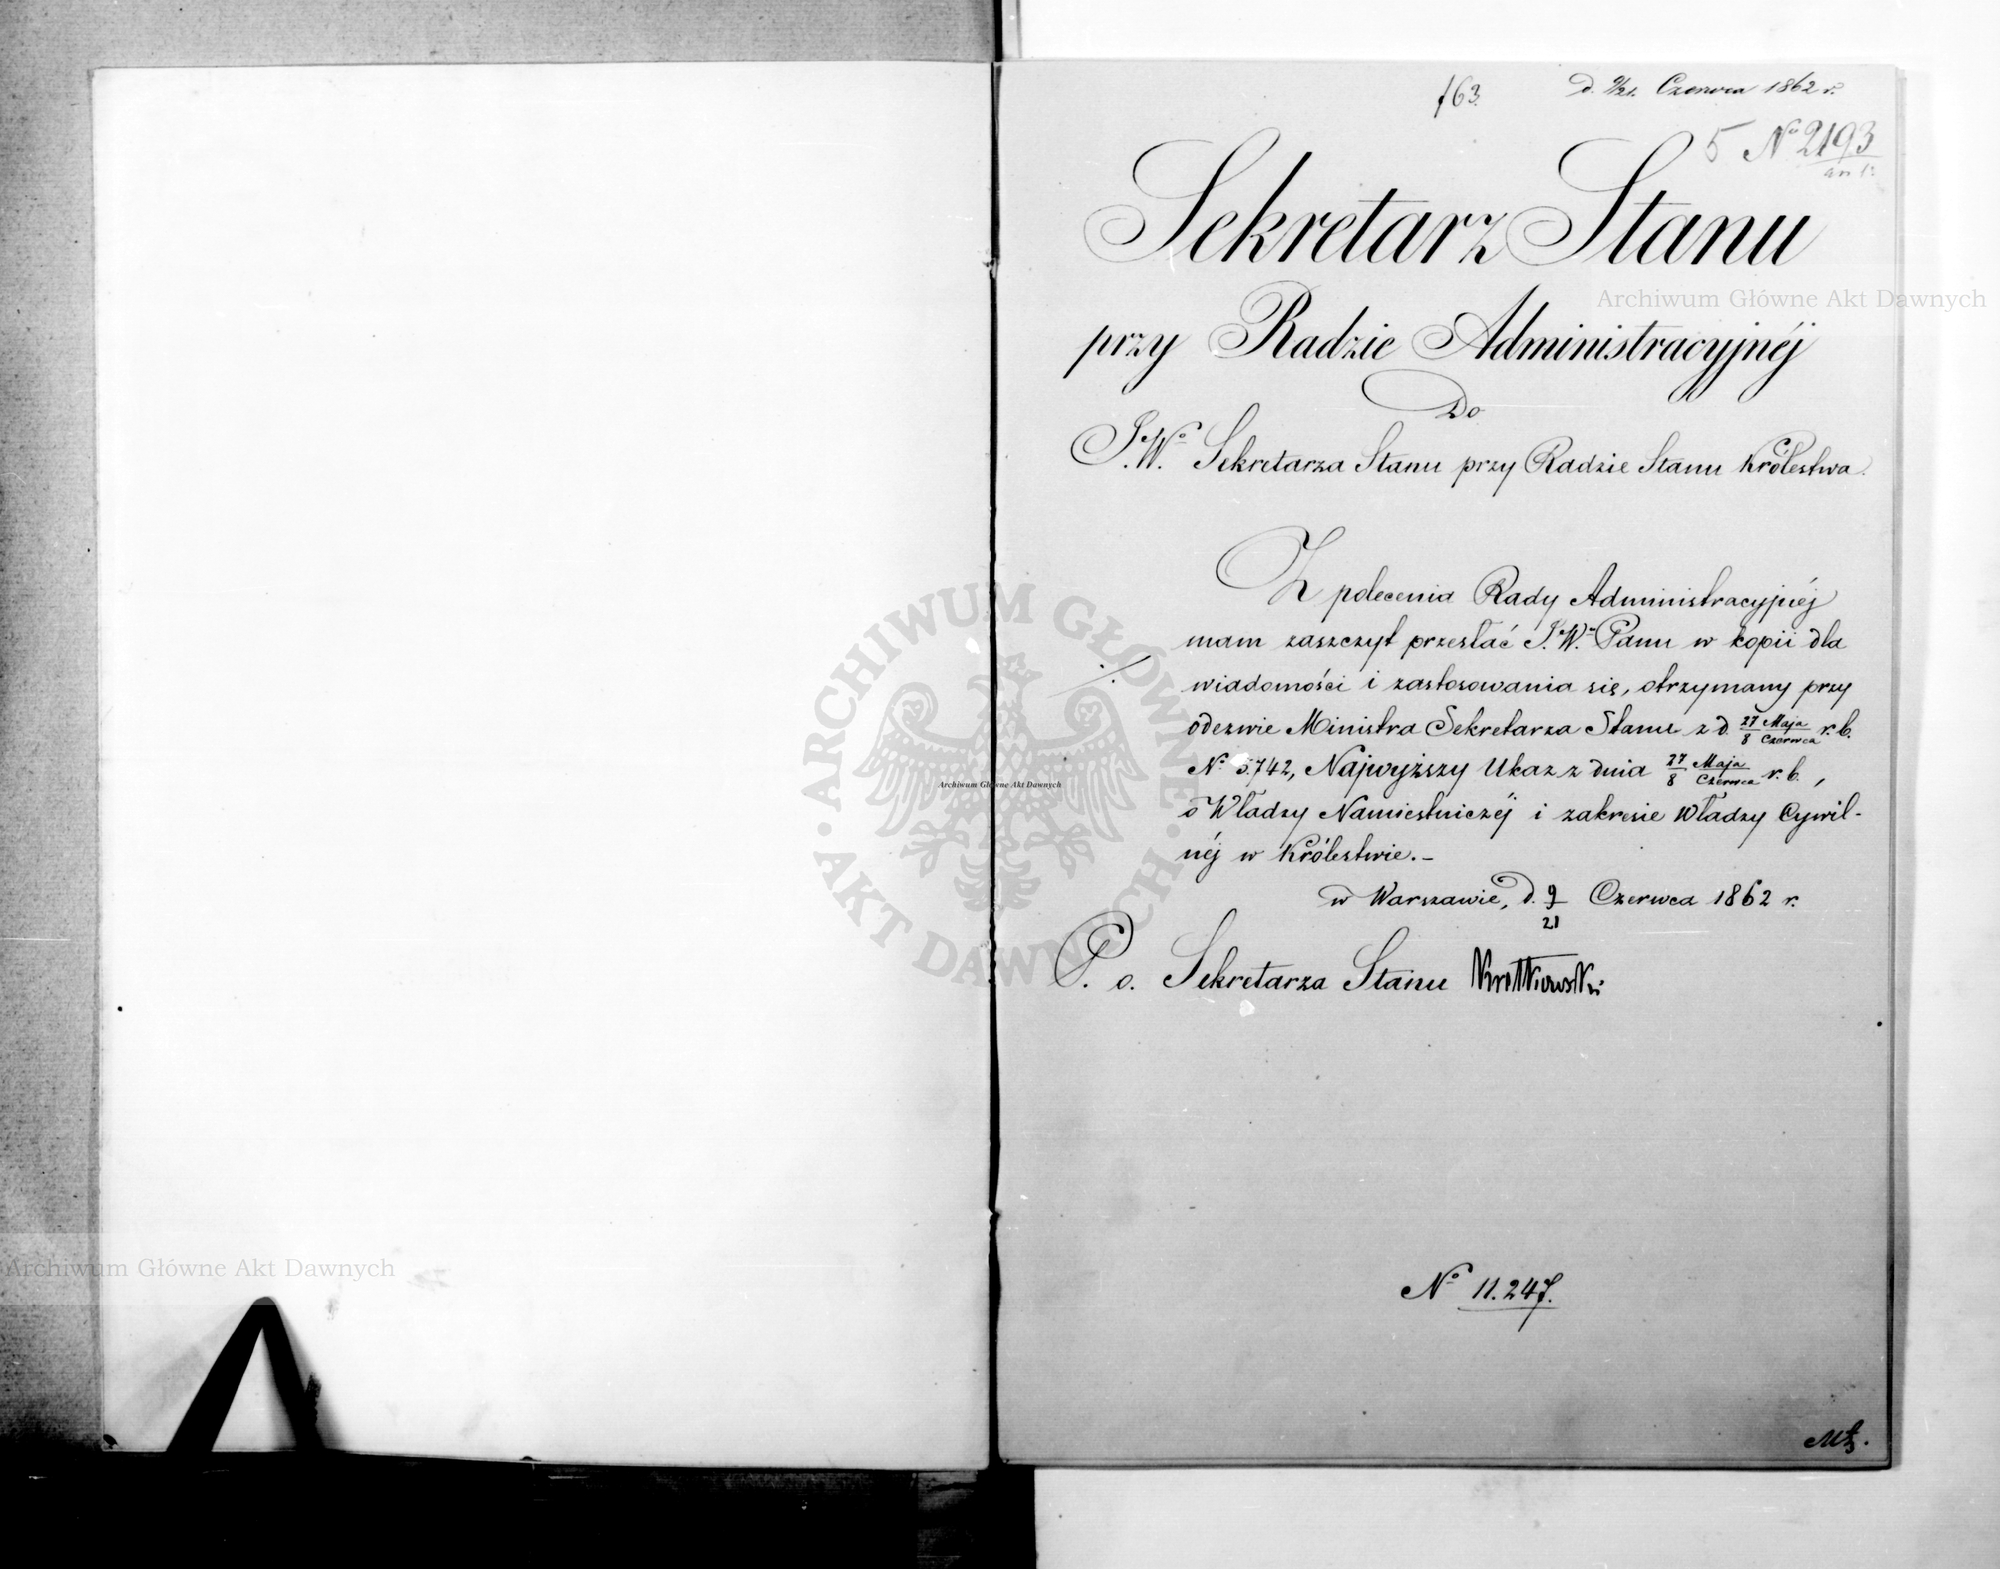 163.
d. 9/21. Czerwca 1862 r.
5 No 2193
Sekretarz Stanu
przy Radzie Administracyjnéj
Do
J.Wo. Sekretarza Stanu przy Radzie Stanu Królestwa.
Z polecenia Rady Administracyjnéj
mam zaszczyt przesłać J.W. Panu w kopii dla
wiadomości i zastosowania się, otrzymany przy
odezwie Ministra Sekretarza Stanu z d. 27 Maja/8 Czerwca r. b.
No 5.742, Najwyższy Ukaz z dnia 27 Maja/8 Czerwca r. b.,
o Władzy Namiestniczéj i zakresie Władzy Cywil-
néj w Królestwie.-
w Warszawie, d. 9/21 Czerwca 1862 r.
P. o. Sekretarza Stanu Krotkowski
No 11.247.
Archiwum Główne Akt Dawnych
ARCHIWUM GŁÓWNE · AKT DAWNYCH ·
Archiwum Główne Akt Dawnych
Archiwum Główne Akt Dawnych